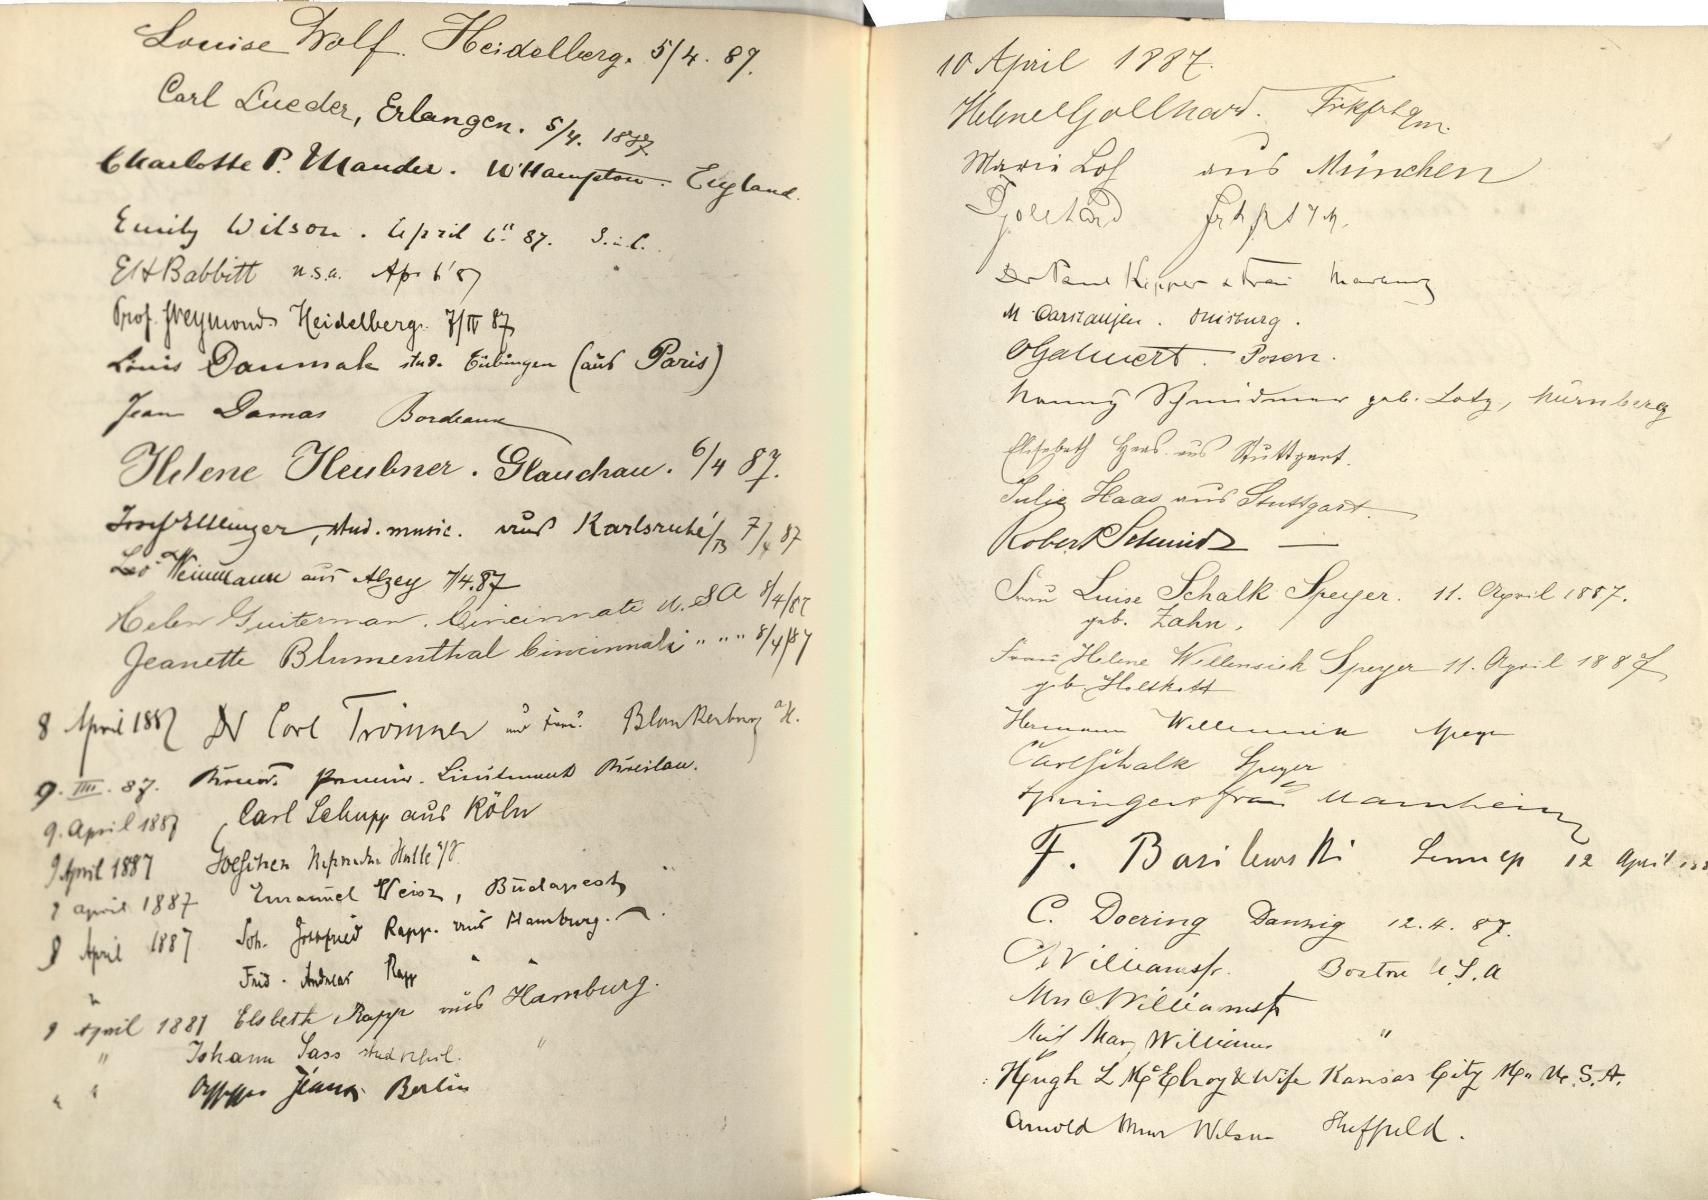 Louise Wolf. Heidelberg. 5/4. 87.
Carl Lueder, Erlangen. 5/4. 1887
Charlotte P. Mander. W'Hampton. England.
Emily Wilson. April 6" 87.
E H Babbitt U.S.A. Apr 6 '87
Prof. Heidelberg. 7/IV 87
Louis stud. Tübingen (aus Paris)
Jean Damas Bordeaux
Helene Heubner. Glauchau. 6/4 87.
Josef Ettlinger, stud. music. aus Karlsruhe/B 7/4 87
Leo Weinmann aus Alzey 7/4.87
Helen Guiterman. Cincinnati U.S.A 8/4/87
Jeanette Blumenthal Cincinnati " " " 8/4/87
8 April 1887 Dr Carl Trömner und Frau. Blankenburg a/H.
9. IIII. 87. Lieutenant Breslau.
9. April 1887 Carl Schupp aus Köln
9 April 1887 Halle a/S.
9 April 1887 Emanuel Weisz, Budapest
9 April 1887 Joh. Gottfried Rapp. aus Hamburg.
" Frid. Andreas Rapp " "
9 April 1887 Elsbeth Rapp aus Hamburg.
" Johann Sass stud. "
" " Berlin
10 April 1887.
Helene Gollhard. Frkfrt a/m.
Maria aus München
Frkft a M.
Dr Paul & Frau Marburg
M. Carstanjen. Duisburg.
Posen.
Nanny geb. Lotz, Nürnberg
Elisabeth Haas aus Stuttgart.
Julie Haas aus Stuttgart.
Robert Schmidt —
Frau Luise Schalk Speyer. 11. April 1887.
geb. Zahn.
Frau Helene Willensich Speyer 11. April 1887
geb. Holtkott
Hermann Speyer
Carl Schalk Speyer
Mannheim
F. Basilewski Lennep 12 April
C. Doering Danzig 12. 4. 87.
C Williams Jr. Boston U.S.A
Mrs C Williams Jr
Miss Mary Williams "
Hugh L McElroy & Wife Kansas City Mo U.S.A.
Arnold Muir Wilson Sheffield.